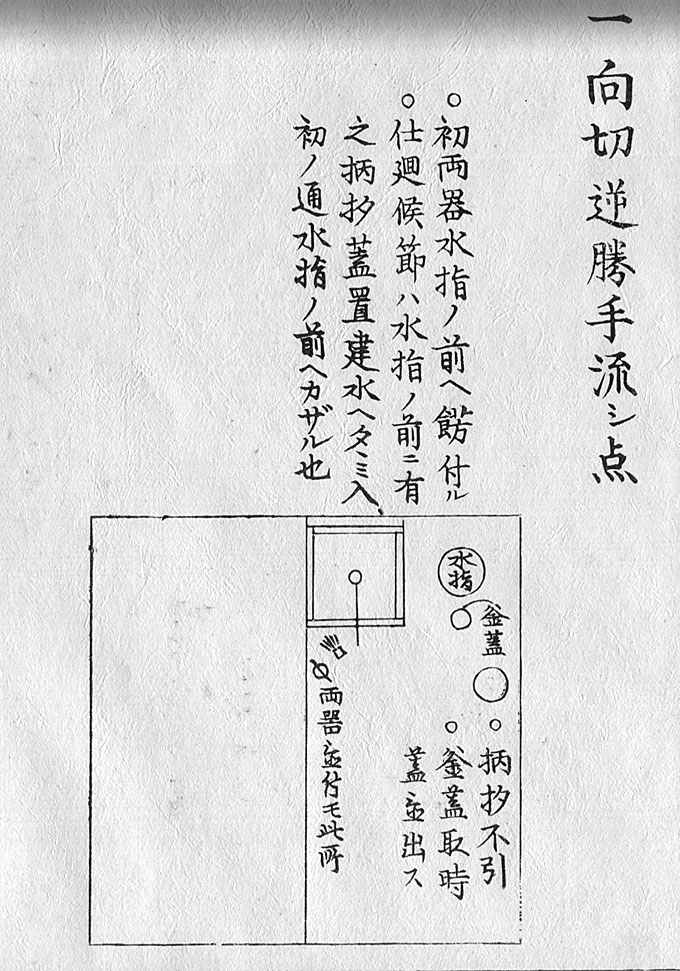 一向切逆勝手流シ点
○初両器水指ノ前ヘ餝付ル
○仕廻候節ハ水指ノ前ニ有
之柄抄蓋置建水ヘタヽミ入、
初ノ通水指ノ前ヘカザル也
水指
釜蓋
○柄抄不引
○釜蓋取時
蓋置出ス
両器置付モ此所